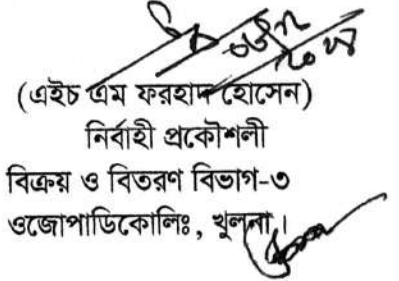 (এইচ এম ফরহাদ হোসেন)
নির্বাহী প্রকৌশলী
বিক্রয় ও বিতরণ বিভাগ-৩
ওজোপাডিকোলিঃ, খুলনা।